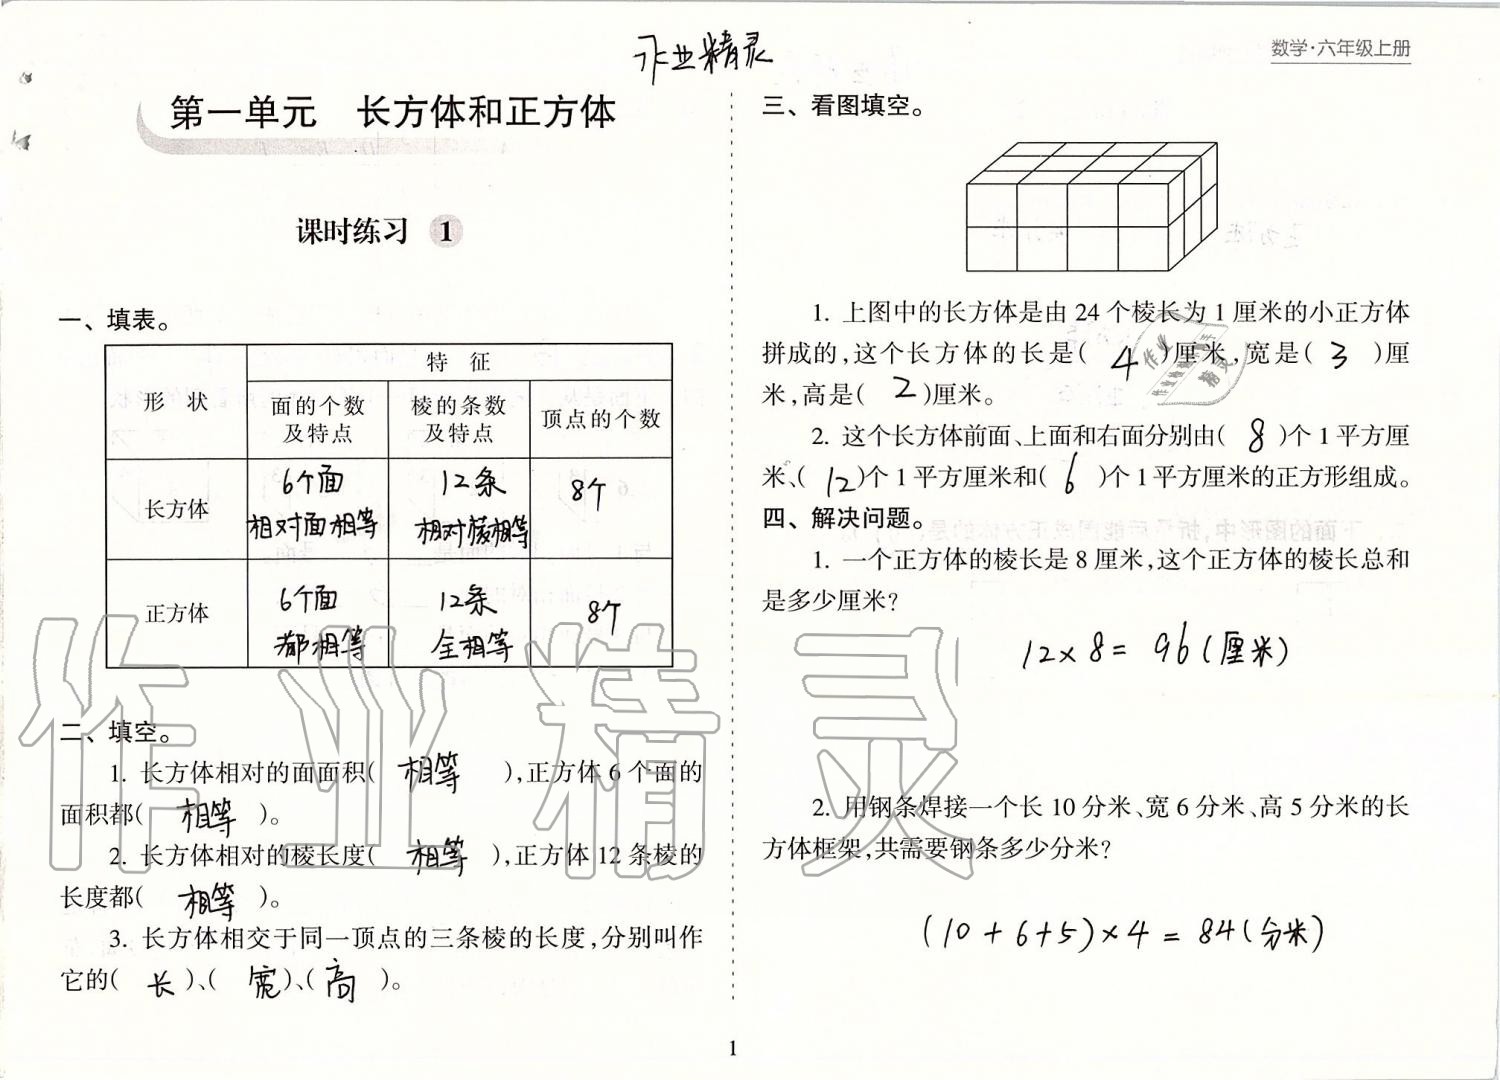 作业精灵
数学·六年级上册
第一单元 长方体和正方体
课时练习 1
一、填表。
形 状
特 征
面的个数
及特点
棱的条数
及特点
顶点的个数
长方体
6个面
相对面相等
12条
相对棱相等
8个
正方体
6个面
都相等
12条
全相等
8个
二、填空。
1. 长方体相对的面面积( 相等 ),正方体 6 个面的
面积都( 相等 )。
2. 长方体相对的棱长度( 相等 ),正方体 12 条棱的
长度都( 相等 )。
3. 长方体相交于同一顶点的三条棱的长度,分别叫作
它的( 长 )、( 宽 )、( 高 )。
三、看图填空。
1. 上图中的长方体是由 24 个棱长为 1 厘米的小正方体
拼成的,这个长方体的长是( 4 )厘米,宽是( 3 )厘
米,高是( 2 )厘米。
2. 这个长方体前面、上面和右面分别由( 8 )个 1 平方厘
米、( 12 )个 1 平方厘米和( 6 )个 1 平方厘米的正方形组成。
四、解决问题。
1. 一个正方体的棱长是 8 厘米,这个正方体的棱长总和
是多少厘米?
12×8=96(厘米)
2. 用钢条焊接一个长 10 分米、宽 6 分米、高 5 分米的长
方体框架,共需要钢条多少分米?
(10+6+5)×4=84(分米)
作业精灵
1